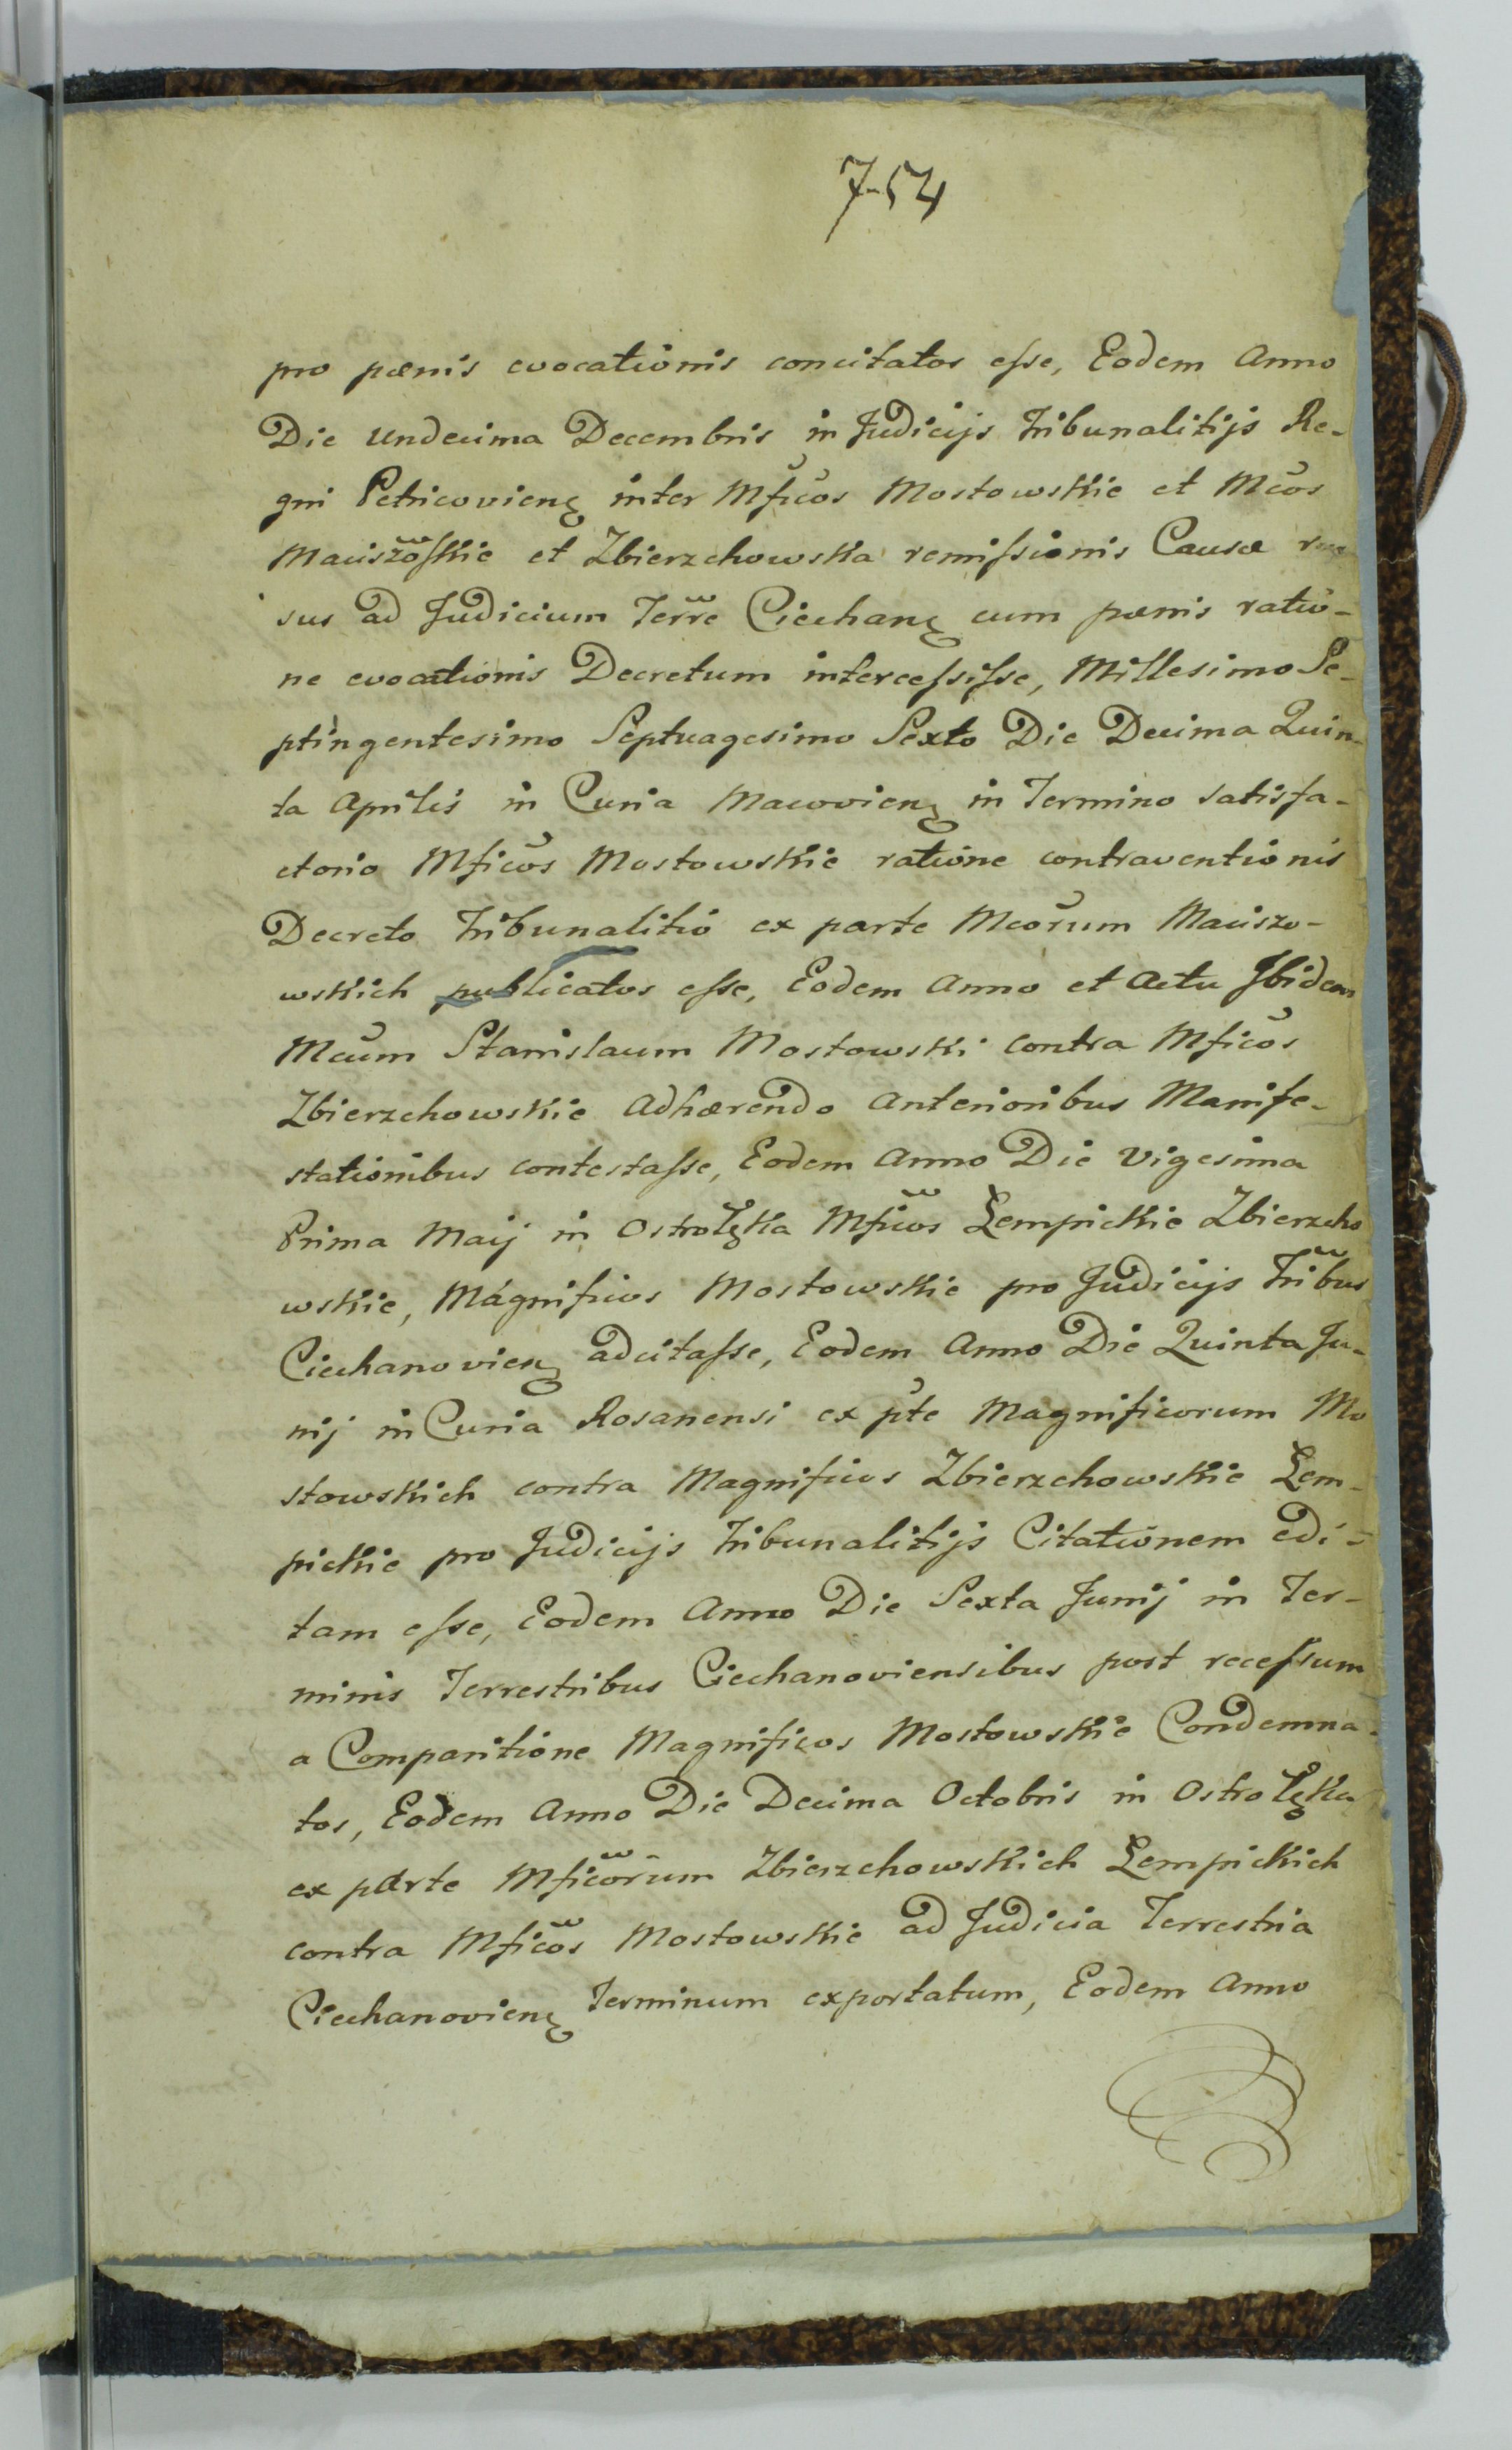 7-54
pro pœnis evocationis concitatos esse, Eodem Anno
Die Undecima Decembris in Judicijs Tribunalitijs Re-
gni Petricovienę inter Mficos Mostowskie et Mcos
Maciszõskie et Zbierzchowska remissionis Causæ
sus ad Judicium Terre Ciechanę cum pœnis ratio-
ne evocationis Decretum intercessisse, Millesimo Se-
ptingentesimo Septuagesimo Sexto Die Decima Quin-
ta Aprilis in Curia Macovienę in Termino satisfa-
ctorio Mficos Mostowskie ratione contraventionis
Decreto Tribunalitio ex parte Mcorum Maciszo-
wskich publicatos esse, Eodem Anno et Actu Ibidem
Mcum Stanislaum Mostowski contra Mficos
Zbierzchowskie Adhærendo Anterioribus Manife-
stationibus contestasse, Eodem Anno Die Vigesima
Prima Maij in Ostrołęka Mficos Łempickie Zbierzcho
wskie, Magnificos Mostowskie pro Judicijs Tribus
Ciechanovienę adcitasse, Eodem Anno Die Quinta Ju-
nij in Curia Rosanensi ex pte Magnificorum Mo
stowskich contra Magnificos Zbierzchowskie Łem-
pickie pro Judicijs Tribunalitijs Citationem edi-
tam esse, Eodem Anno Die Sexta Junij in Ter-
minis Terrestribus Ciechanoviensibus post recessum
a Comparitione Magnificos Mostowskie Condemna-
tos, Eodem Anno Die Decima Octobris in Ostrołęka
ex parte Mficorum Zbierzchowskich Łempickich
contra Mficos Mostowskie ad Judicia Terrestria
Ciechanovienę Terminum exportatum, Eodem Anno